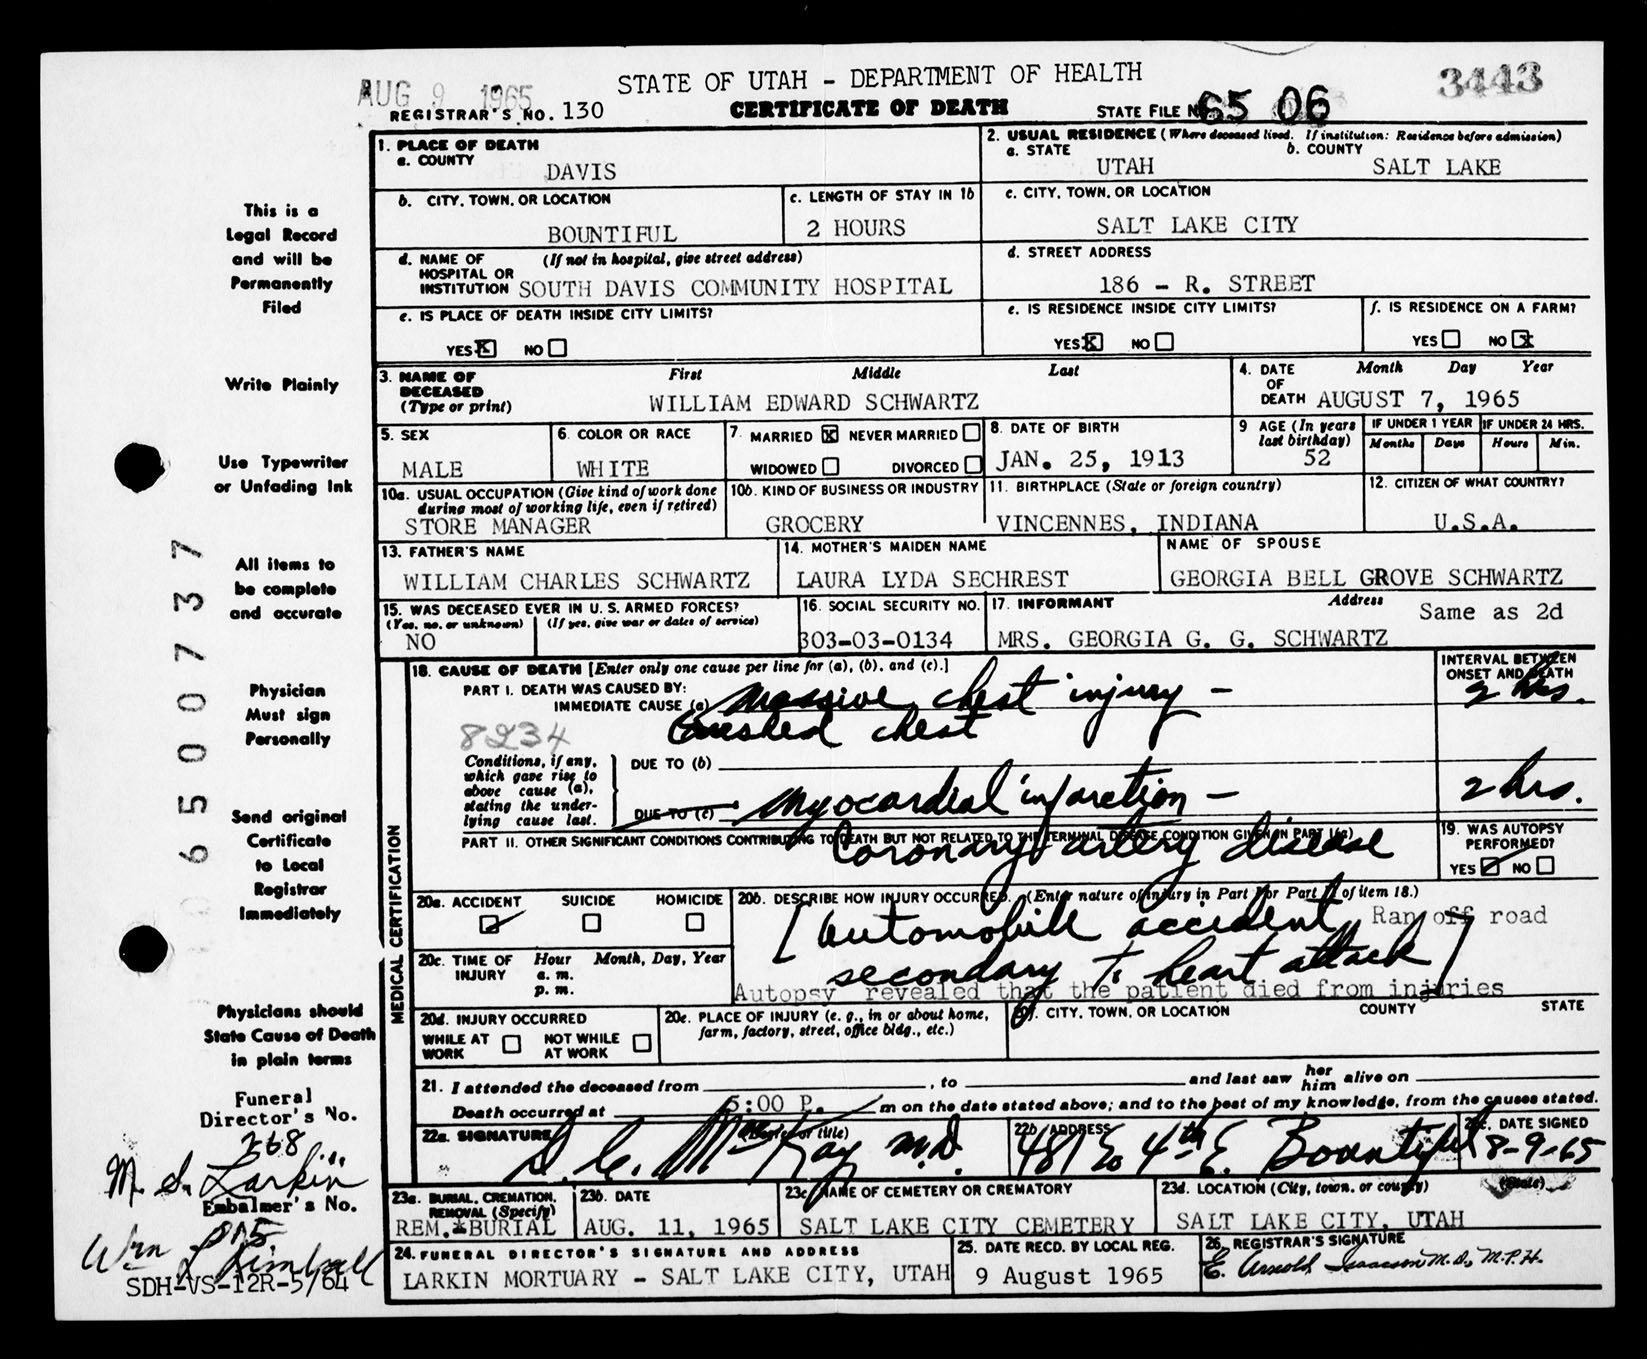 STATE OF UTAH - DEPARTMENT OF HEALTH
3443
AUG 9 1965
REGISTRAR'S NO. 130
CERTIFICATE OF DEATH
STATE FILE NO 65 06
1. PLACE OF DEATH
a. COUNTY
DAVIS
2. USUAL RESIDENCE (Where deceased lived. If institution: Residence before admission)
a. STATE b. COUNTY
UTAH SALT LAKE
b. CITY, TOWN, OR LOCATION
BOUNTIFUL
c. LENGTH OF STAY IN 1b
2 HOURS
c. CITY, TOWN, OR LOCATION
SALT LAKE CITY
d. NAME OF HOSPITAL OR INSTITUTION (If not in hospital, give street address)
SOUTH DAVIS COMMUNITY HOSPITAL
d. STREET ADDRESS
186 - R. STREET
e. IS PLACE OF DEATH INSIDE CITY LIMITS?
YES X NO
e. IS RESIDENCE INSIDE CITY LIMITS?
YES X NO
f. IS RESIDENCE ON A FARM?
YES NO X
3. NAME OF DECEASED (Type or print)
First Middle Last
WILLIAM EDWARD SCHWARTZ
4. DATE OF DEATH Month Day Year
AUGUST 7, 1965
5. SEX
MALE
6. COLOR OR RACE
WHITE
7. MARRIED X NEVER MARRIED
WIDOWED DIVORCED
8. DATE OF BIRTH
JAN. 25, 1913
9 AGE (In years last birthday)
52
IF UNDER 1 YEAR IF UNDER 24 HRS.
Months Days Hours Min.
10a. USUAL OCCUPATION (Give kind of work done during most of working life, even if retired)
STORE MANAGER
10b. KIND OF BUSINESS OR INDUSTRY
GROCERY
11. BIRTHPLACE (State or foreign country)
VINCENNES, INDIANA
12. CITIZEN OF WHAT COUNTRY?
U.S.A.
13. FATHER'S NAME
WILLIAM CHARLES SCHWARTZ
14. MOTHER'S MAIDEN NAME
LAURA LYDA SECHREST
NAME OF SPOUSE
GEORGIA BELL GROVE SCHWARTZ
15. WAS DECEASED EVER IN U.S. ARMED FORCES?
(Yes, no, or unknown) (If yes, give war or dates of service)
NO
16. SOCIAL SECURITY NO.
303-03-0134
17. INFORMANT Address
Same as 2d
MRS. GEORGIA G. G. SCHWARTZ
MEDICAL CERTIFICATION
18. CAUSE OF DEATH [Enter only one cause per line for (a), (b), and (c).]
INTERVAL BETWEEN ONSET AND DEATH
PART I. DEATH WAS CAUSED BY:
IMMEDIATE CAUSE (a) Massive chest injury - 2 hrs.
Crushed chest
8234
Conditions, if any, which gave rise to above cause (a), stating the underlying cause last.
DUE TO (b)
DUE TO (c) Myocardial infarction - 2 hrs.
PART II. OTHER SIGNIFICANT CONDITIONS CONTRIBUTING TO DEATH BUT NOT RELATED TO THE TERMINAL DISEASE CONDITION GIVEN IN PART I(a)
Coronary artery disease
19. WAS AUTOPSY PERFORMED?
YES NO
20a. ACCIDENT SUICIDE HOMICIDE
20b. DESCRIBE HOW INJURY OCCURRED. (Enter nature of injury in Part I or Part II of item 18.)
[Automobile accident Ran off road
secondary to heart attack]
Autopsy revealed that the patient died from injuries
20c. TIME OF INJURY Hour a.m. p.m. Month, Day, Year
20d. INJURY OCCURRED
WHILE AT WORK NOT WHILE AT WORK
20e. PLACE OF INJURY (e. g., in or about home, farm, factory, street, office bldg., etc.)
20f. CITY, TOWN, OR LOCATION COUNTY STATE
21. I attended the deceased from , to and last saw her him alive on
Death occurred at 5:00 P. m on the date stated above; and to the best of my knowledge, from the causes stated.
22a. SIGNATURE (Degree or title)
D. C. McKay M.D.
22b. ADDRESS
481 So 4th E. Bountiful
22c. DATE SIGNED
8-9-65
23a. BURIAL, CREMATION, REMOVAL (Specify)
REM. & BURIAL
23b. DATE
AUG. 11, 1965
23c. NAME OF CEMETERY OR CREMATORY
SALT LAKE CITY CEMETERY
23d. LOCATION (City, town, or county) (State)
SALT LAKE CITY, UTAH
24. FUNERAL DIRECTOR'S SIGNATURE AND ADDRESS
LARKIN MORTUARY - SALT LAKE CITY, UTAH
25. DATE RECD. BY LOCAL REG.
9 August 1965
26. REGISTRAR'S SIGNATURE
E. Arnold Isaacson M.D., M.P.H.
This is a
Legal Record
and will be
Permanently
Filed
Write Plainly
Use Typewriter
or Unfading Ink
All items to
be complete
and accurate
Physician
Must sign
Personally
Send original
Certificate
to Local
Registrar
Immediately
Physicians should
State Cause of Death
in plain terms
Funeral
Director's No.
268
M. S. Larkin
Embalmer's No.
Wm L Kimball
SDH-VS-12R-5/64
06500737